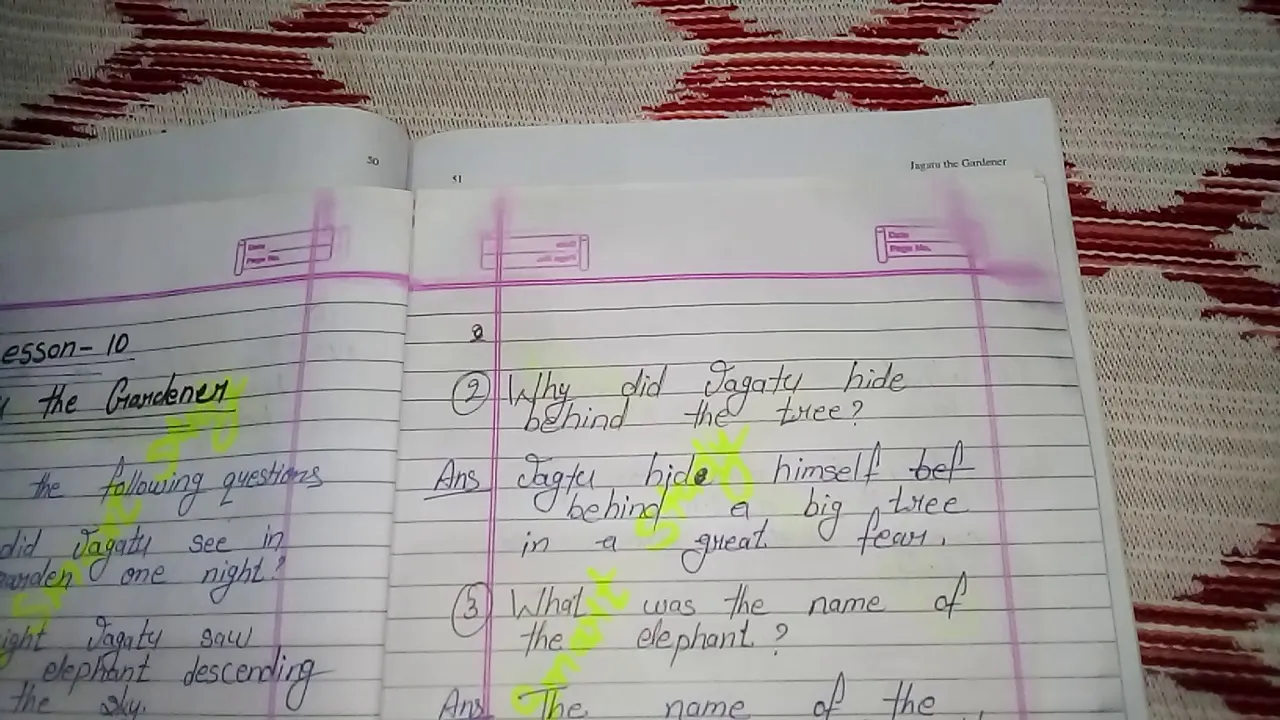 50
esson- 10
the Gardener
the following questions
did Jagatu see in
garden one night?
ight Jagatu saw
elephant descending
the sky.
51
Jagatu the Gardener
Date
Page No.
Date
Page No.
2
② Why did Jagatu hide
behind the tree?
Ans Jagtu hide himself bef
behind a big tree
in a great fear.
③ What was the name of
the elephant.?
Ans The name of the